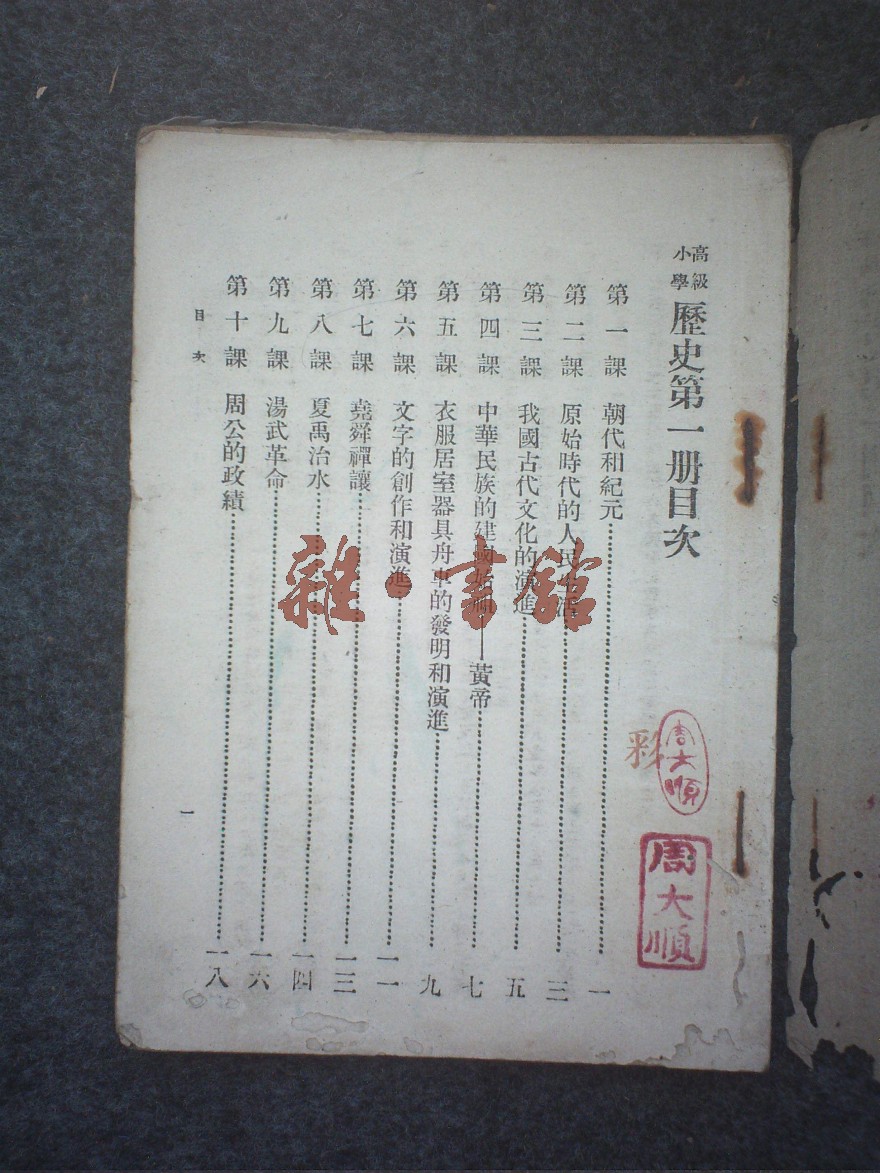 高級小學 歷史第一册目次
第一課 朝代和紀元 一
第二課 原始時代的人民生活 三
第三課 我國古代文化的演進 五
第四課 中華民族的建國始祖——黃帝 七
第五課 衣服居室器具舟車的發明和演進 九
第六課 文字的創作和演進 一一
第七課 堯舜禪讓 一三
第八課 夏禹治水 一四
第九課 湯武革命 一六
第十課 周公的政績 一八
目次 一
雜·書館
周大順
周大順